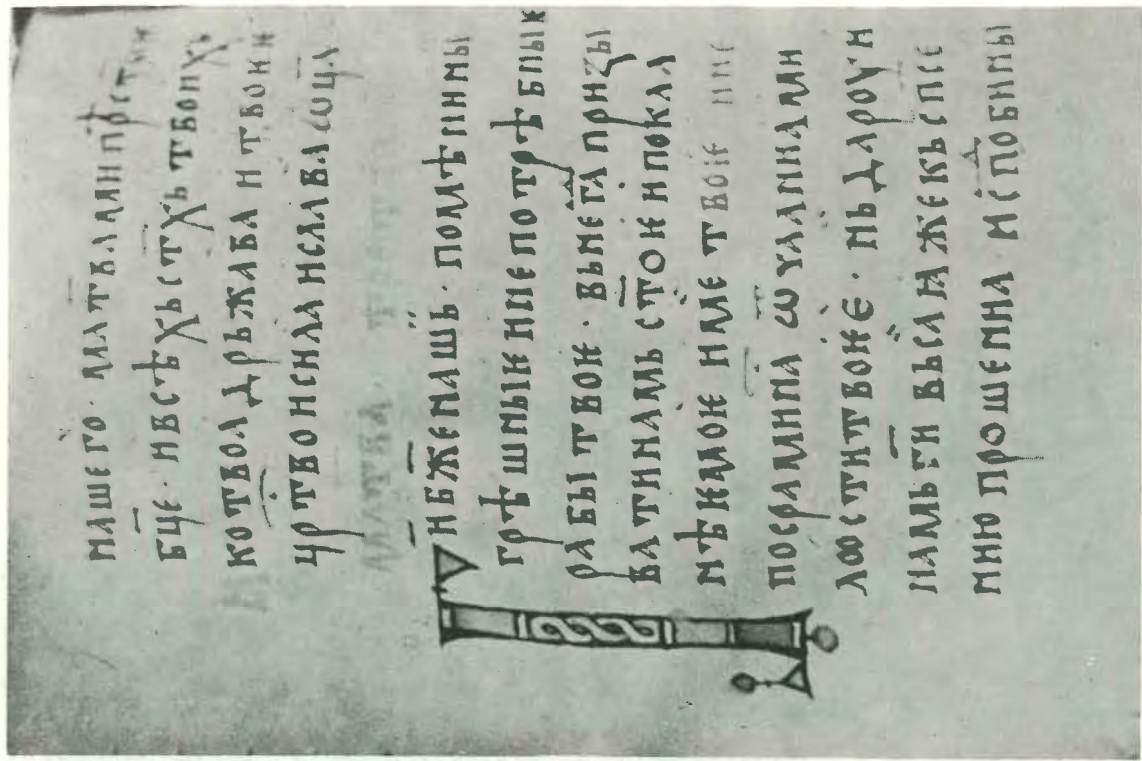 нашего · мл҃твами пр҃стыѥ
бц҃е · и всѣхь ст҃хь твоихь
ко твоꙗ дрьжава и твоѥ
цр҃тво и сила и слава ѿца
мл҃тва
Г҃и б҃же нашь · помѣни ны
грѣшныѥ и непотрѣбныѥ
рабы твоѥ · вьнѥгⷣа призы
вати намь ст҃оѥ и покла
нѣѥмоѥ име твоѥ и не
посрами на ѿ чаꙗниꙗ ми
лости твоѥѥ · нь дароуи
намь г҃и вьса ꙗже кь сп҃се
нию прошениꙗ · и споⷣби ны